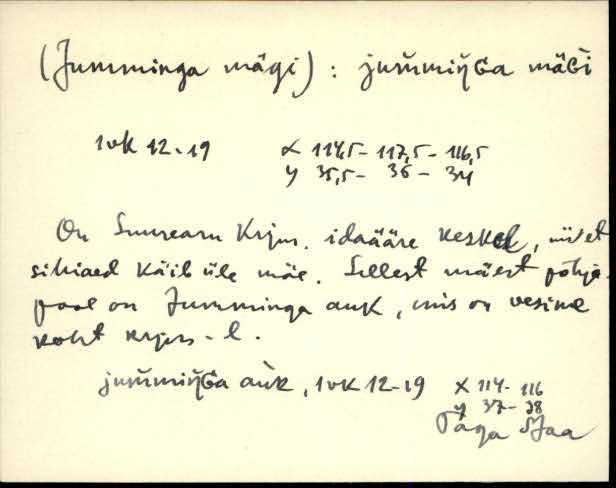 (Jumminga mägi) : jum̆miŋ̆Ga mäGi
1vk 12-19 x 114,5 - 117,5 - 116,5
y 35,5 - 36 - 34
On Suurearu Krjm. idaääre keskel, nii et
sihiaed käib üle mäe. Sellest mäest põhja-
pool on Jumminga auk, mis on vesine
koht krjm-l.
jum̆miŋ̆Ga aùk, 1vk 12-19 x 114 - 116
y 37 - 38